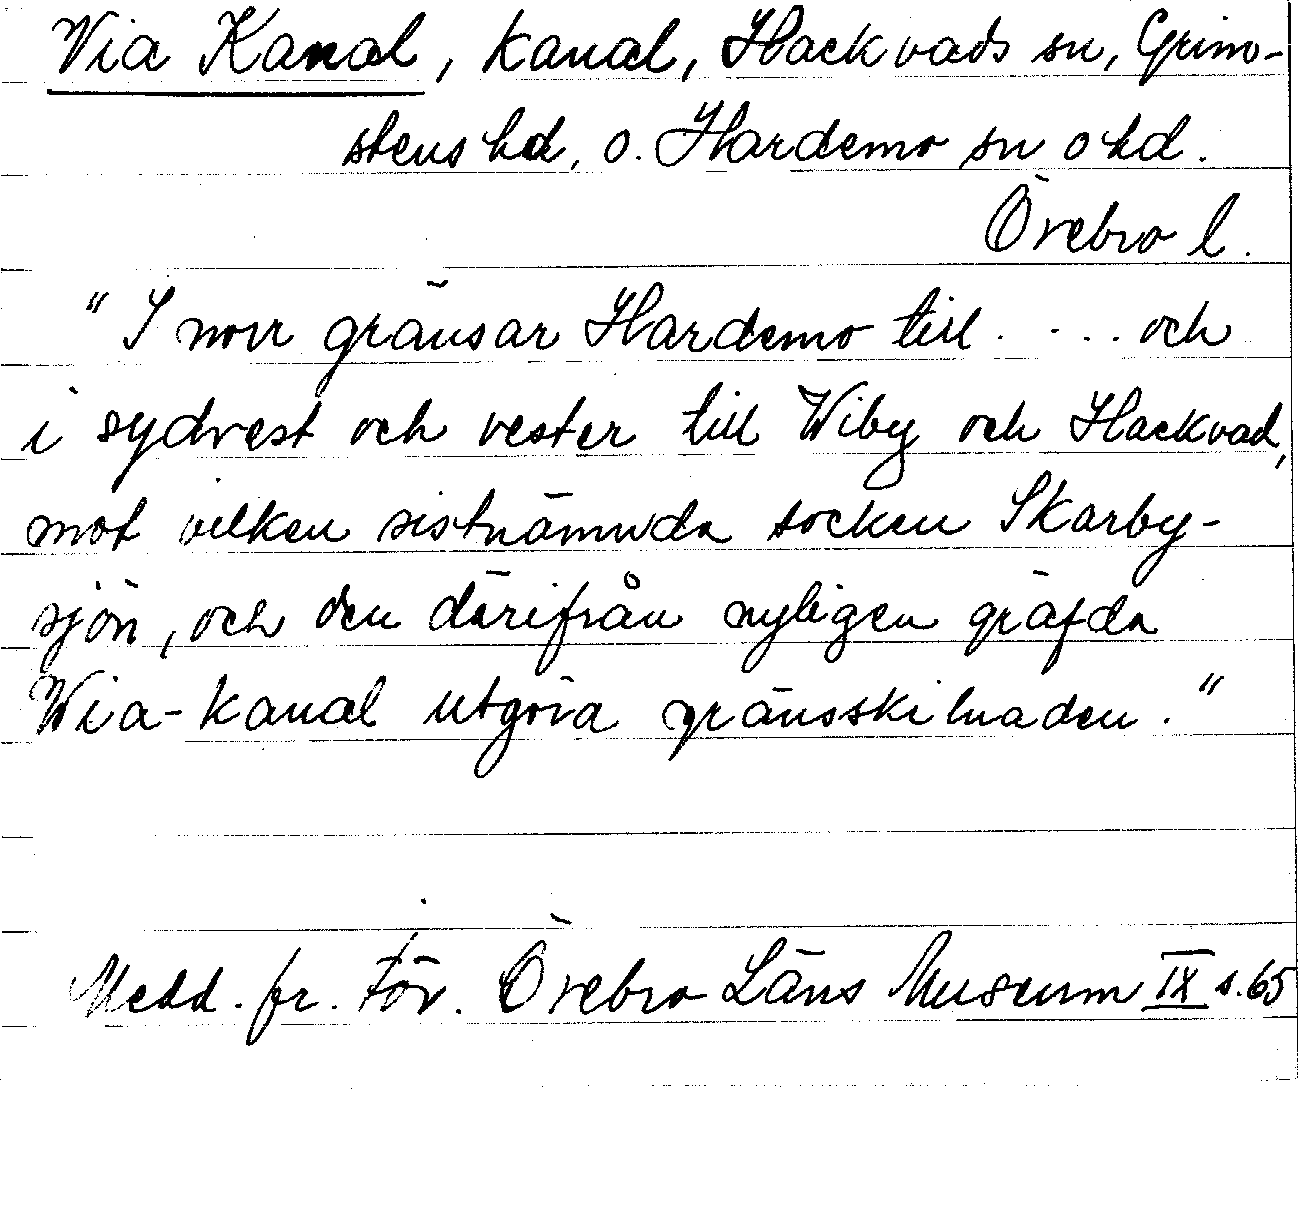 Via Kanal, kanal, Hackvads sn, Grim-
stens hd, o. Hardemo sn o hd.
Örebro l.
"I norr gränsar Hardemo till .... och
i sydvest och vester till Wiby och Hackvad,
mot vilken sistnämnda socken Skarby-
sjön, och den därifrån nyligen gräfda
Wia-kanal utgöra gränsskilnaden."
Medd. fr. För. Örebro Läns Museum IX s. 65